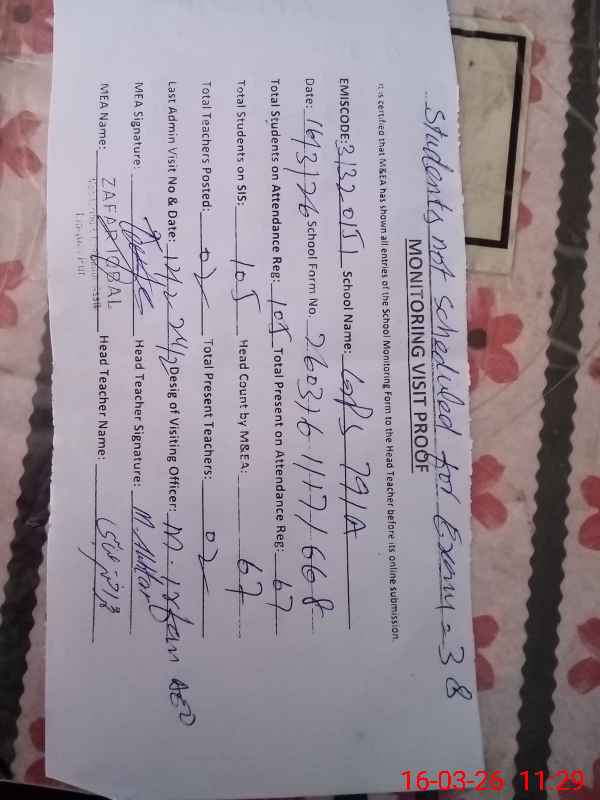 Students not scheduled for Exam = 38
MONITORING VISIT PROOF
It is certified that M&EA has shown all entries of the School Monitoring Form to the Head Teacher before its online submission.
EMISCODE: 31320151 School Name: GPS 79/A
Date: 16/3/26 School Form No.
Total Students on Attendance Reg: 105 Total Present on Attendance Reg: 67
Total Students on SIS: 105 Head Count by M&EA: 67
Total Teachers Posted: 02 Total Present Teachers: 02
Last Admin Visit No & Date: Desig of Visiting Officer: M. Irfan AEO
MEA Signature: Head Teacher Signature:
MEA Name: ZAFAR IQBAL Head Teacher Name:
16-03-26 11:29